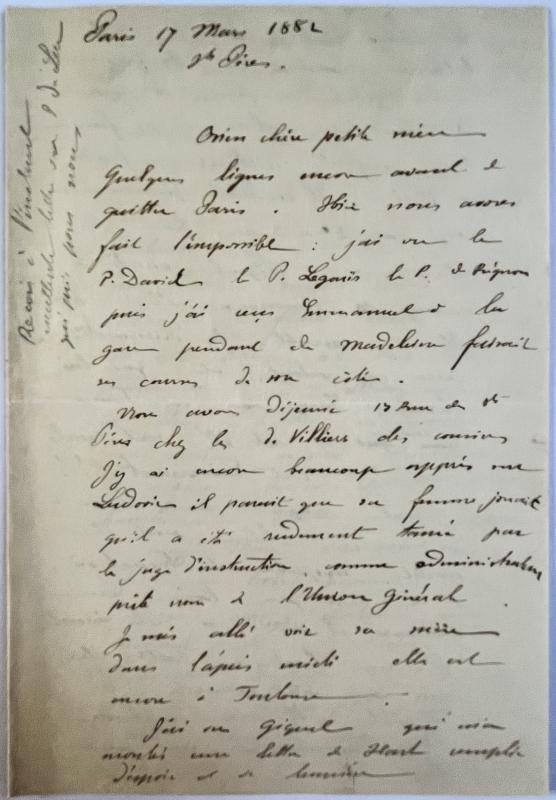 Paris 17 Mars 1882
Sts Pères.
Mon chère petite mère
Quelques lignes encore avant de
quitter Paris. Hier nous avons
fait l'impossible : j'ai vu le
P. David le P. le P. de
puis j'ai Emmanuel à la
gare pendant que Madeleine faisait
ses courses de son côté.
Nous avons déjeuné 17 rue des Sts
Pères chez les de Villiers des cousins
J'y ai encore beaucoup appris sur
Ludovic il parait que sa femme
qu'il a été rudement par
le juge d'instruction comme administrateur
prête nom de l'Union Général
Je suis allé voir sa mère
dans l'après midi elle est
encore à Toulouse
J'ai vu Giguel qui m'a
montré une lettre de remplie
d'espoir et de lumière
Reçois à l'instant
excellente lettre du P de
qui prie pour nous